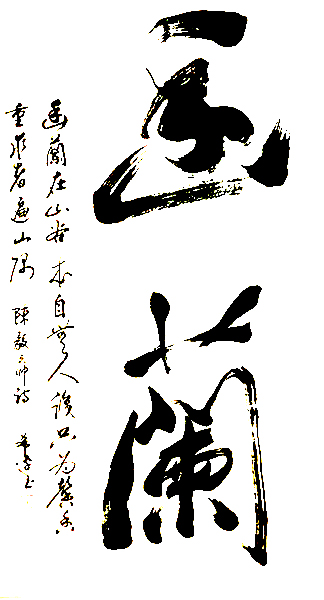 幽蘭
幽蘭在山谷本自無人識只为馨香
重求者遍山隅 陳毅元帥詩